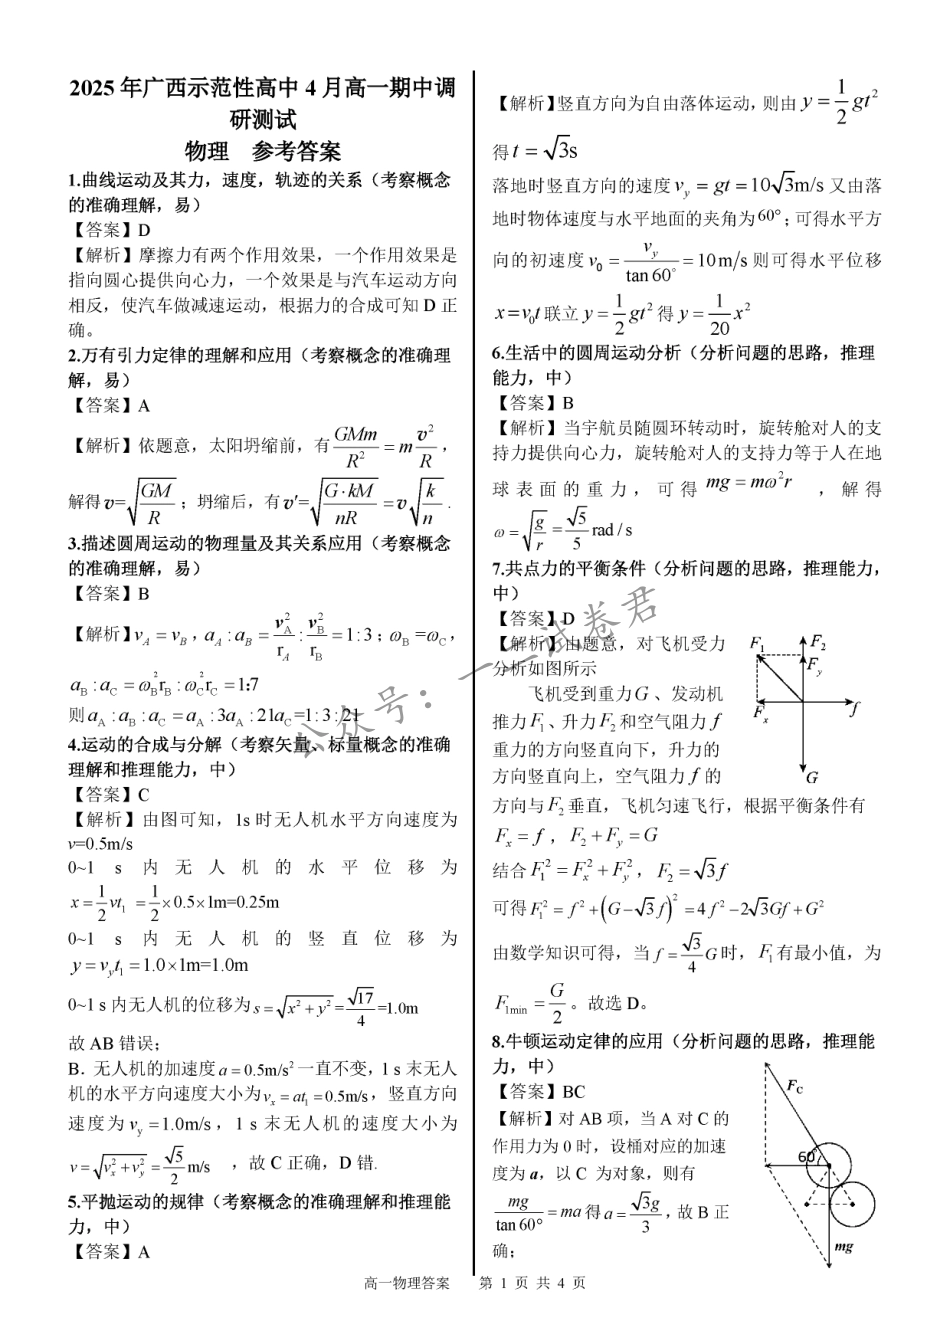 2025 年广西示范性高中 4 月高一期中调
研测试
物理 参考答案
1.曲线运动及其力，速度，轨迹的关系（考察概念
的准确理解，易）
【答案】D
【解析】摩擦力有两个作用效果，一个作用效果是
指向圆心提供向心力，一个效果是与汽车运动方向
相反，使汽车做减速运动，根据力的合成可知 D 正
确。
2.万有引力定律的理解和应用（考察概念的准确理
解，易）
【答案】A
【解析】依题意，太阳坍缩前，有 GMm/R² = m v²/R ，
解得 v=√(GM/R) ；坍缩后，有 v′=√(G·kM/nR) = v√(k/n) .
3.描述圆周运动的物理量及其关系应用（考察概念
的准确理解，易）
【答案】B
【解析】v_A = v_B ，a_A : a_B = v_A²/r_A : v_B²/r_B = 1:3 ；ω_B =ω_C ，
a_B : a_C = ω_B²r_B : ω_C²r_C = 1:7
则 a_A : a_B : a_C = a_A : 3a_A : 21a_C =1:3:21
4.运动的合成与分解（考察矢量、标量概念的准确
理解和推理能力，中）
【答案】C
【解析】由图可知，1s 时无人机水平方向速度为
v=0.5m/s
0~1 s 内无人机的水平位移为
x = 1/2 vt₁ = 1/2 ×0.5×1m=0.25m
0~1 s 内无人机的竖直位移为
y = v_y t₁ = 1.0×1m=1.0m
0~1 s 内无人机的位移为 s = √(x² + y²) = √17/4 =1.0m
故 AB 错误；
B．无人机的加速度 a = 0.5m/s² 一直不变，1 s 末无人
机的水平方向速度大小为 v_x = at₁ = 0.5m/s ，竖直方向
速度为 v_y =1.0m/s ，1 s 末无人机的速度大小为
v = √(v_x² + v_y²) = √5/2 m/s ，故 C 正确，D 错.
5.平抛运动的规律（考察概念的准确理解和推理能
力，中）
【答案】A
【解析】竖直方向为自由落体运动，则由 y = 1/2 gt²
得 t = √3s
落地时竖直方向的速度 v_y = gt =10√3m/s 又由落
地时物体速度与水平地面的夹角为 60°；可得水平方
向的初速度 v₀ = v_y/tan 60° = 10 m/s 则可得水平位移
x = v₀t 联立 y = 1/2 gt² 得 y = 1/20 x²
6.生活中的圆周运动分析（分析问题的思路，推理
能力，中）
【答案】B
【解析】当宇航员随圆环转动时，旋转舱对人的支
持力提供向心力，旋转舱对人的支持力等于人在地
球表面的重力，可得 mg = mω²r ，解得
ω = √(g/r) = √5/5 rad / s
7.共点力的平衡条件（分析问题的思路，推理能力，
中）
【答案】D
【解析】由题意，对飞机受力
分析如图所示
飞机受到重力 G 、发动机
推力 F₁、升力 F₂ 和空气阻力 f
重力的方向竖直向下，升力的
方向竖直向上，空气阻力 f 的
方向与 F₂ 垂直，飞机匀速飞行，根据平衡条件有
F_x = f ，F₂ + F_y = G
结合 F₁² = F_x² + F_y² ，F₂ = √3 f
可得 F₁² = f² + (G − √3 f)² = 4f² − 2√3Gf + G²
由数学知识可得，当 f = √3/4 G 时，F₁ 有最小值，为
F₁min = G/2 。故选 D。
F₁
F₂
F_y
F_x
f
G
8.牛顿运动定律的应用（分析问题的思路，推理能
力，中）
【答案】BC
【解析】对 AB 项，当 A 对 C 的
作用力为 0 时，设桶对应的加速
度为 a，以 C 为对象，则有
mg/tan 60° = ma 得 a = √3g/3 ，故 B 正
确；
F_C
60°
mg
公众号：一一试卷君
高一物理答案 第 1 页 共 4 页